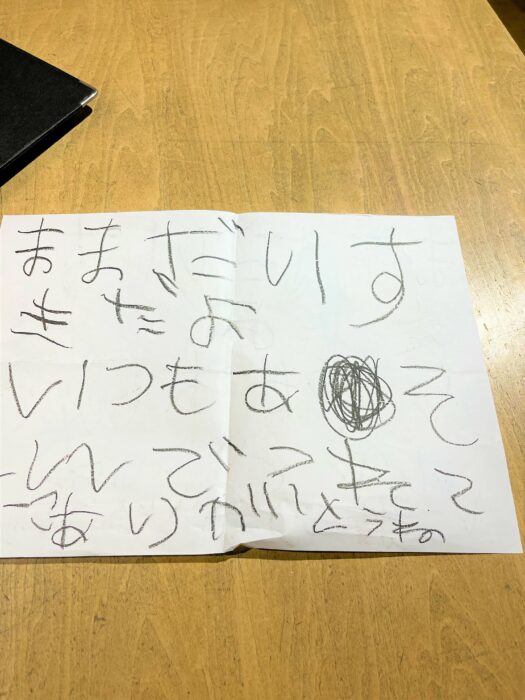 ままだいす
きだよ
いつもあそ
んでくれて
ありがとうね